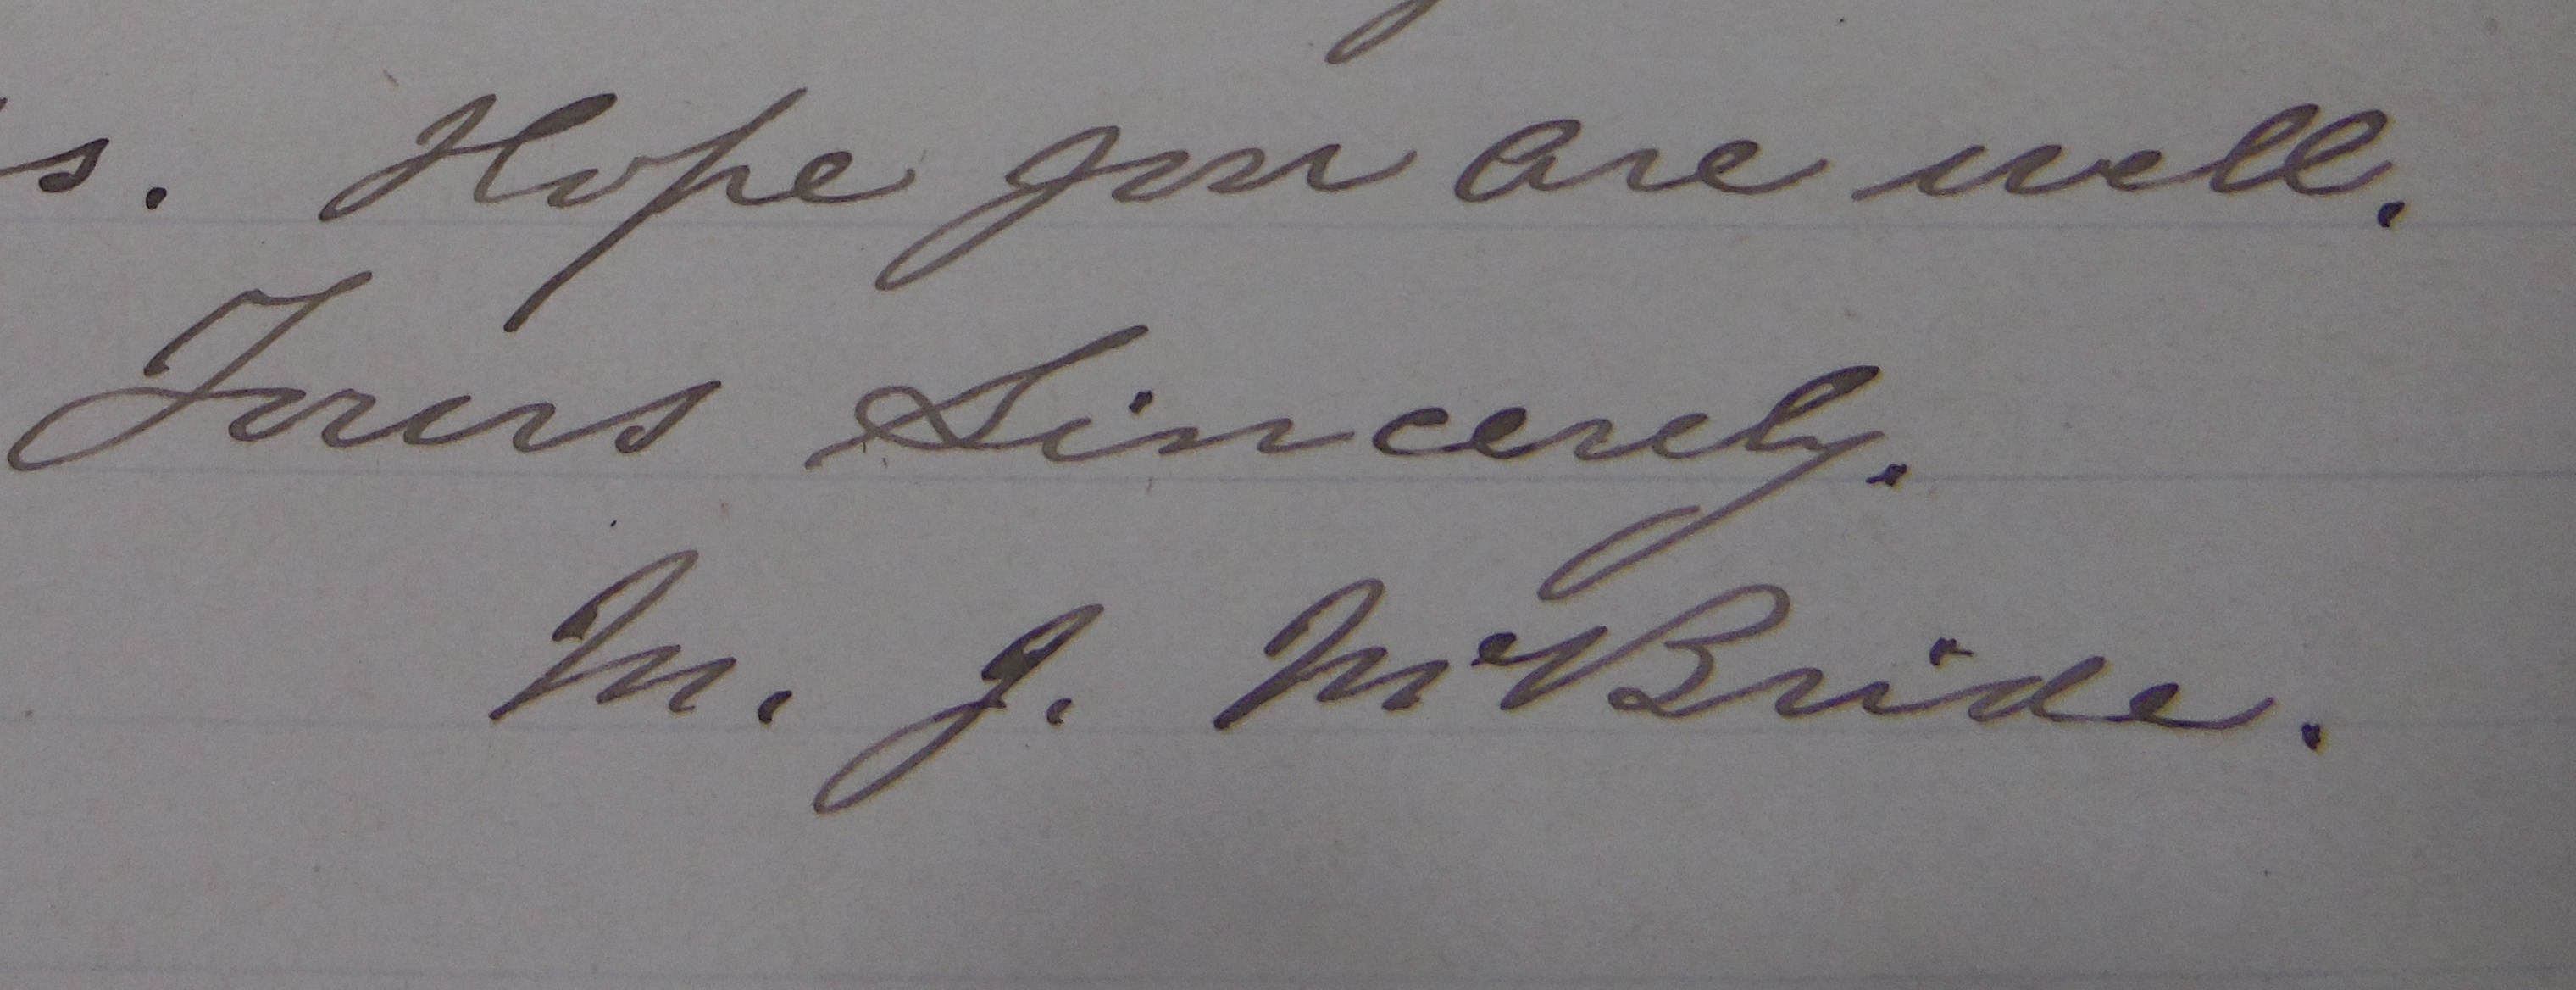 s. Hope you are well.
Yours Sincerely.
M. J. McBride.